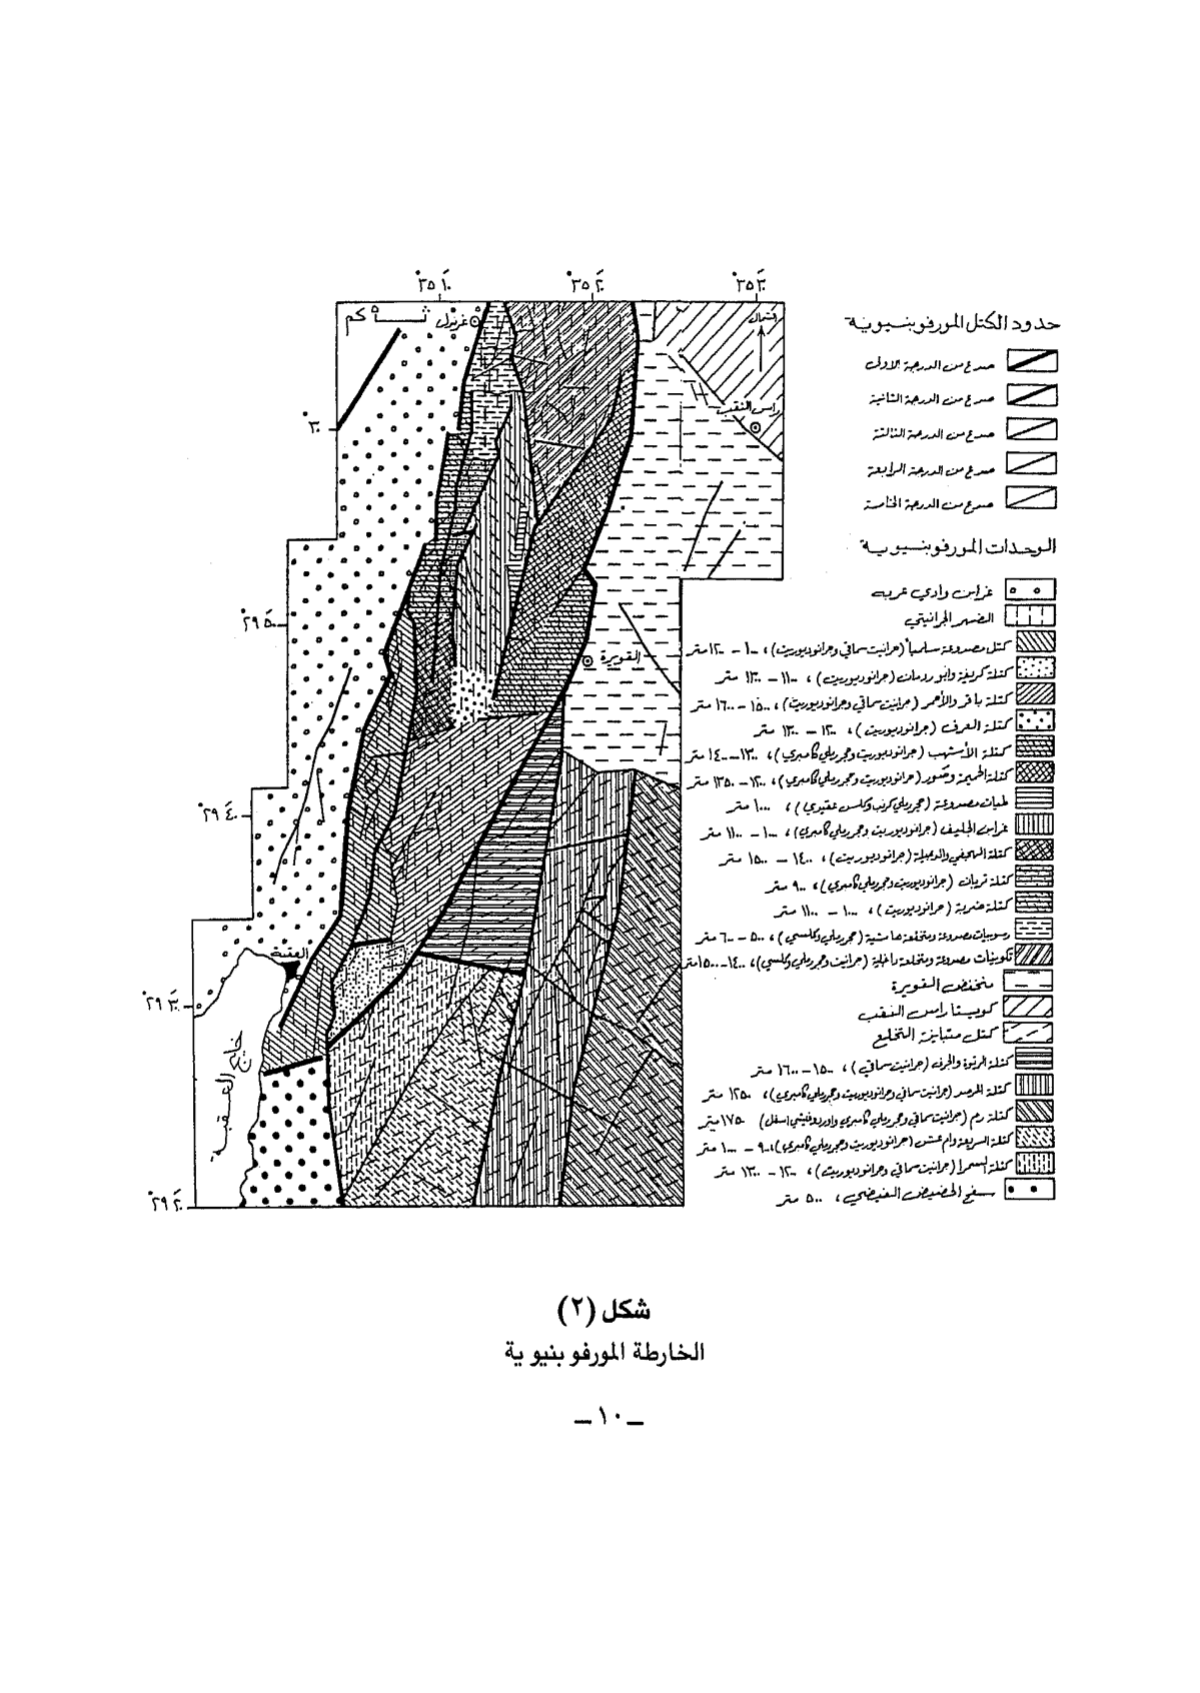 °٣٥ ١٠َ
°٣٥ ٢٠َ
°٣٥ ٣٠َ
شمال
كم
غرندل
راس النقب
°٣٠
°٢٩ ٥٠َ
القويرة
°٢٩ ٤٠َ
العقبة
°٢٩ ٣٠َ
خليج العقبة
°٢٩ ٢٠َ
حدود الكتل المورفوبنيوية
صدع من الدرجة الاولى
صدع من الدرجة الثانية
صدع من الدرجة الثالثة
صدع من الدرجة الرابعة
صدع من الدرجة الخامسة
الوحدات المورفوبنيوية
غراس وادي عربه
الضهر الجرانيتي
كتل مصدوعة سلمياً (جرانيت سماقي وجرانوديوريت)، ١٠٠٠ – ١٢٠٠ متر
كتلة وأبو ردمان (جرانوديوريت)، ١١٠٠ – ١٣٠٠ متر
كتلة باقر والأحمر (جرانيت سماقي وجرانوديوريت)، ١٥٠٠ – ١٦٠٠ متر
كتلة العرف (جرانوديوريت)، ١٢٠٠ – ١٣٠٠ متر
كتلة الأشهب (جرانوديوريت وحجر رملي كامبري)، ١٣٠٠ – ١٤٠٠ متر
كتلة الحميمة (جرانوديوريت وحجر رملي كامبري)، ١٢٠٠ – ١٣٥٠ متر
طيات مصدوعة (حجر رملي كرنب وكلس عقيدي)، ١٠٠٠ متر
غراس الجليف (جرانوديوريت وحجر رملي كامبري)، ١٠٠٠ – ١١٠٠ متر
كتلة (جرانوديوريت)، ١٤٠٠ – ١٥٠٠ متر
كتلة قريان (جرانوديوريت وحجر رملي كامبري)، ٩٠٠ متر
كتلة ضربة (جرانوديوريت)، ١٠٠٠ – ١١٠٠ متر
رسوبيات مصدوعة ومتخلعة هامشية (حجر رملي وكلسي)، ٥٠٠ – ٦٠٠ متر
تكوينات مصدوعة ومتخلعة داخلية (جرانيت وحجر رملي وكلسي)، ١٤٠٠ – ١٥٠٠ متر
منخفض القويرة
كويستا راس النقب
كتل متباينة التخلع
كتلة والجرف (جرانيت سماقي)، ١٥٠٠ – ١٦٠٠ متر
كتلة المرصد (جرانيت سماقي وجرانوديوريت وحجر رملي كامبري)، ١٢٥٠ متر
كتلة رم (جرانيت سماقي وحجر رملي كامبري واوردوفيشي اسفل) ١٧٥٠ متر
كتلة وام عشرن (جرانوديوريت وحجر رملي كامبري)، ٩٠٠ – ١٠٠٠ متر
كتلة السمرا (جرانيت سماقي وجرانوديوريت)، ١٢٠٠ – ١٣٠٠ متر
سفح الحضيض الفيضي، ٥٠٠ متر
شكل (٢)
الخارطة المورفو بنيو ية
– ١٠ –